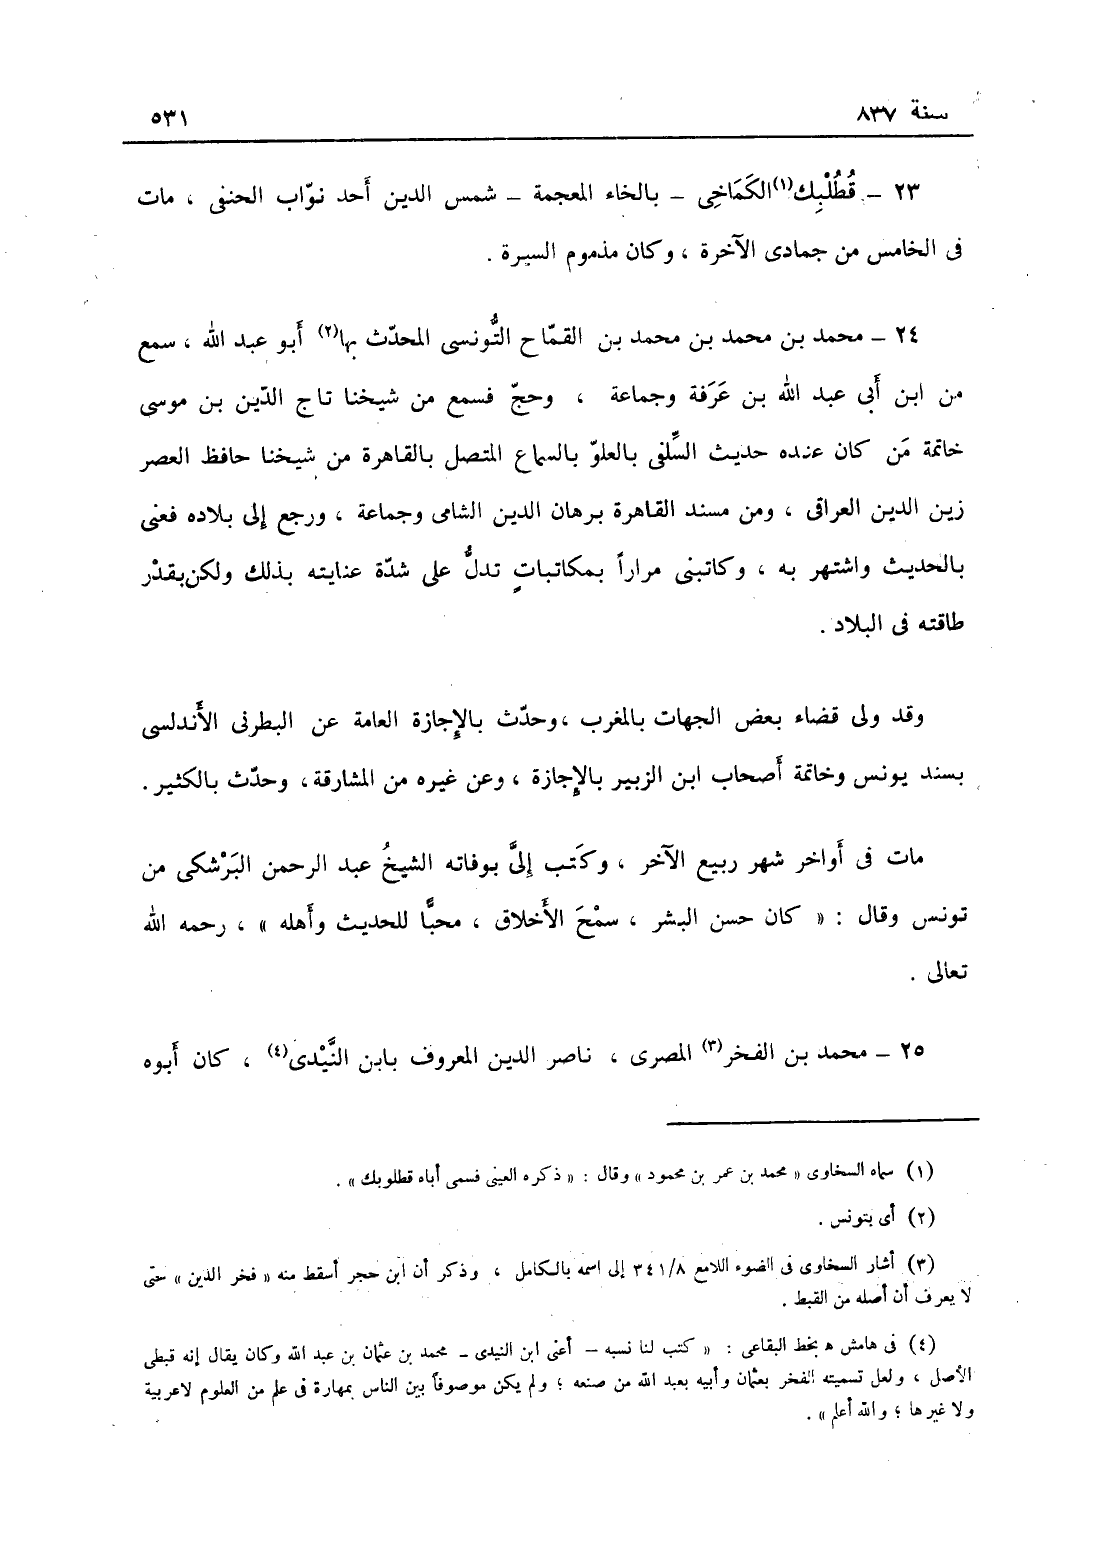 سنة ٨٣٧
٥٣١
٢٣ ـ قُطُلْبِك(١) الكَمَاخِى ـ بالخاء المعجمة ـ شمس الدين أَحد نوّاب الحننى ، مات
فى الخامس من جمادى الآخرة ، وكان مذموم السيرة .
٢٤ ـ محمد بن محمد بن محمد بن القمّاح التُّونسى المحدّث بها(٢) أَبو عبد الله ، سمع
من ابن أَبى عبد الله بن عَرَفة وجماعة ، وحجّ فسمع من شيخنا تاج الدّين بن موسى
خاتمة مَن كان عنده حديث السِّلفى بالعلوّ بالسماع المتصل بالقاهرة من شيخنا حافظ العصر
زين الدين العراقى ، ومن مسند القاهرة برهان الدين الشامى وجماعة ، ورجع إلى بلاده فعنى
بالحديث واشتهر به ، وكاتبنى مراراً بمكاتباتٍ تدلُّ على شدّة عنايته بذلك ولكن بقدْر
طاقته فى البلاد .
وقد ولى قضاء بعض الجهات بالمغرب ، وحدّث بالإِجازة العامة عن البطرنى الأَندلسى
بسند يونس وخاتمة أَصحاب ابن الزبير بالإِجازة ، وعن غيره من المشارقة ، وحدّث بالكثير .
مات فى أَواخر شهر ربيع الآخر ، وكَتب إلىَّ بوفاته الشيخُ عبد الرحمن البَرْشكى من
تونس وقال : « كان حسن البشر ، سمْحَ الأَخلاق ، محبًّا للحديث وأَهله » ، رحمه الله
تعالى .
٢٥ ـ محمد بن الفخر(٣) المصرى ، ناصر الدين المعروف بابن النَّيْدى(٤) ، كان أَبوه
(١) سماه السخاوى « محمد بن عمر بن محمود » وقال : « ذكره العينى فسمى أباه قطلوبك » .
(٢) أى بتونس .
(٣) أشار السخاوى فى الضوء اللامع ٣٤١/٨ إلى اسمه بالكامل ، وذكر أن ابن حجر أسقط منه « فخر الدين » حتى
لا يعرف أن أصله من القبط .
(٤) فى هامش ه بخط البقاعى : « كتب لنا نسبه – أعنى ابن النيدى ـ محمد بن عثمان بن عبد الله وكان يقال إنه قبطى
الأصل ، ولعل تسميته الفخر بعثمان وأبيه بعبد الله من صنعه ؛ ولم يكن موصوفاً بين الناس بمهارة فى علم من العلوم لاعربية
ولا غيرها ؛ والله أعلم » .